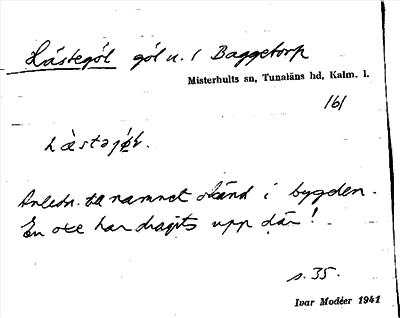 Hästegöl göl u. / Baggetorp
Misterhults sn, Tunaläns hd, Kalm. l.
161
Anledn. till namnet okänd i bygden.
En oxe har dragits upp där!
s. 35.
Ivar Modéer 1941